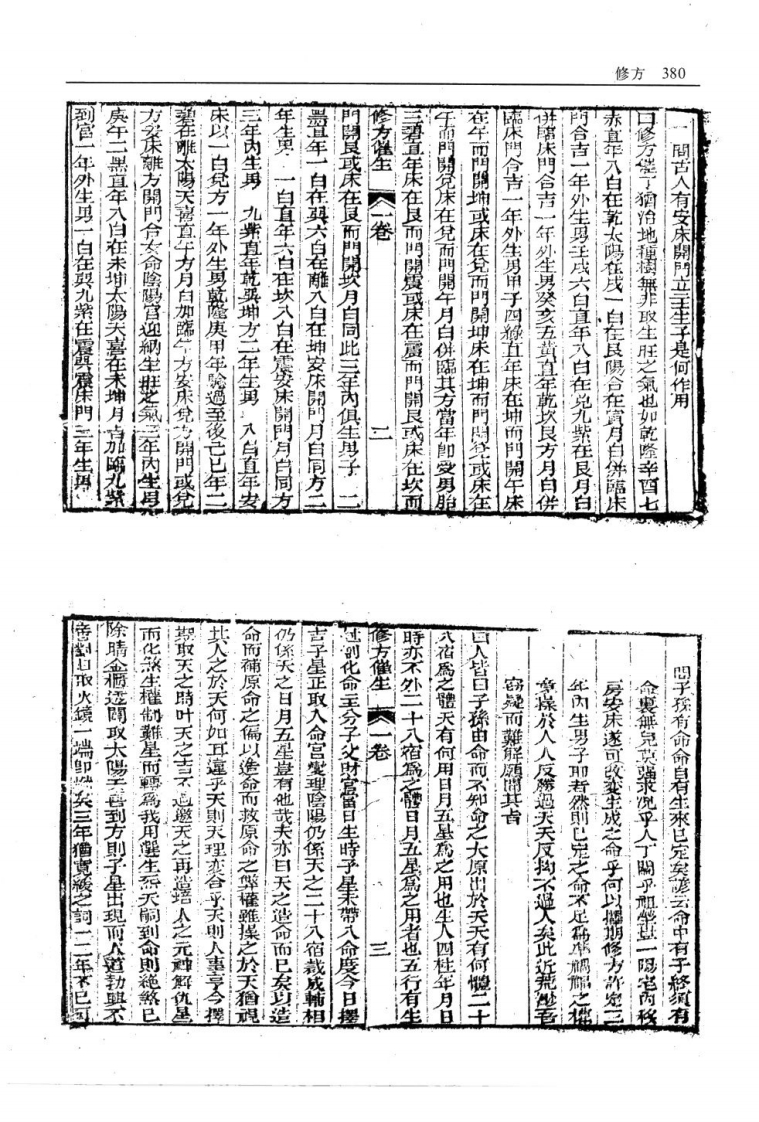 修方 380
一問古人有安床開門立主生子是何作用
曰修方催丁猶治地種樹無非取生旺之氣也如乾隆辛酉七
赤直年八白在乾太陽在戌一白在艮陽合在寅月白併臨床
門合吉一年外生男壬戌六白直年八白在兌九紫在艮月白
併臨床門合吉一年外生男癸亥五黃直年乾坎艮方月白併
臨床門合吉一年外生男甲子四綠直年床在坤而門開午床
在午而門開坤或床在兌而門開坤床在坤而門開兌或床在
午而門開兌床在兌而門開午月白併臨其方當年卽變男胎
三碧直年床在艮而門開震或床在震而門開艮或床在坎而
修方催生 一卷 二
門開艮或床在艮而門開坎月白同此三年內俱生男子 二
黑直年一白在巽六白在離八白在坤安床開門月白同方二
年生男 一白直年六白在坎八白在震安床開門月白同方
三年內生男 九紫直年乾巽坤方二年生男 八白直年安
床以一白兌方一年外生男乾隆庚甲年驗過至後己巳年二
碧在離太陽天喜直午方月白加臨午方安床兌方開門或兌
方安床離方開門合女命陰陽宮迎納生旺之氣三年內生男
庚午二黑直年八白在未坤太陽天喜在未坤月吉加臨九紫
到宮一年外生男一白在巽九紫在震巽震床門三年生男
問子孫有命命自有生來已定矣諺云命中有子終須有
命裏無兒莫強求况乎人丁關乎祖塋豈一陽宅內移
房安床遂可改變生成之命乎何以擇期修方許定三
年內生男子耶若然則已定之命不足為憑禍福之權
竟操於人人反勝過天天反拗不過人矣此近荒謬吾
竊疑而難解願聞其旨
曰人皆曰子孫由命而不知命之大原出於天天有何體二十
八宿為之體天有何用日月五星為之用也生人四柱年月日
時亦不外二十八宿為之體日月五星為之用者也五行有生
修方催生 一卷 三
尅制化命主分子父財官當日生時子星未帶入命度今日擇
吉子星正取入命宮燮理陰陽仍係天之二十八宿裁成輔相
仍係天之日月五星豈有他哉夫亦曰天之造命而已矣以造
命而補原命之偏以造命而救原命之弊權雖操之於天猶視
其人之於天何如耳違乎天則天理亦合乎天則人事亨今擇
期取天之時叶天之吉不過邀天之再造培人之元神解仇星
而化煞生權制難星而轉為我用難生炁天嗣到命則絶煞已
除晴金櫃透開取太陽天喜到方則子星出現而人道勃興不
啻對日取火鏡一端卽燃矣三年猶寬緩之詞一二年不已可